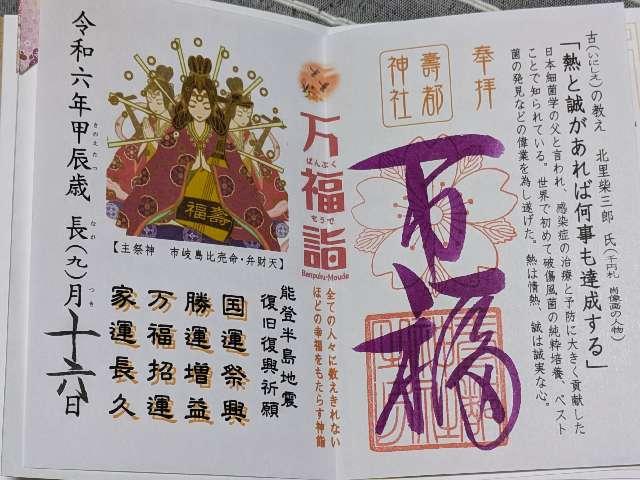 古(いにしえ)の教え 北里柴三郎 氏(千円札 肖像画の人物)
「熱と誠があれば何事も達成する」
日本細菌学の父と言われ、感染症の治療と予防に大きく貢献した
ことで知られている。世界で初めて破傷風菌の純粋培養、ペスト
菌の発見などの偉業を為し遂げた。熱は情熱、誠は誠実な心。
奉拝
壽都
神社
万福
万福詣
ばんぷく
もうで
Banpuku-Moude
全ての人々に数えきれない
ほどの幸福をもたらす神詣
能登半島地震
復旧復興祈願
国運祭興
勝運増益
万福招運
家運長久
福壽
【主祭神 市岐島比売命・弁財天】
令和六年甲辰歳 長(九)月十六日
きのえたつ
なが
つき